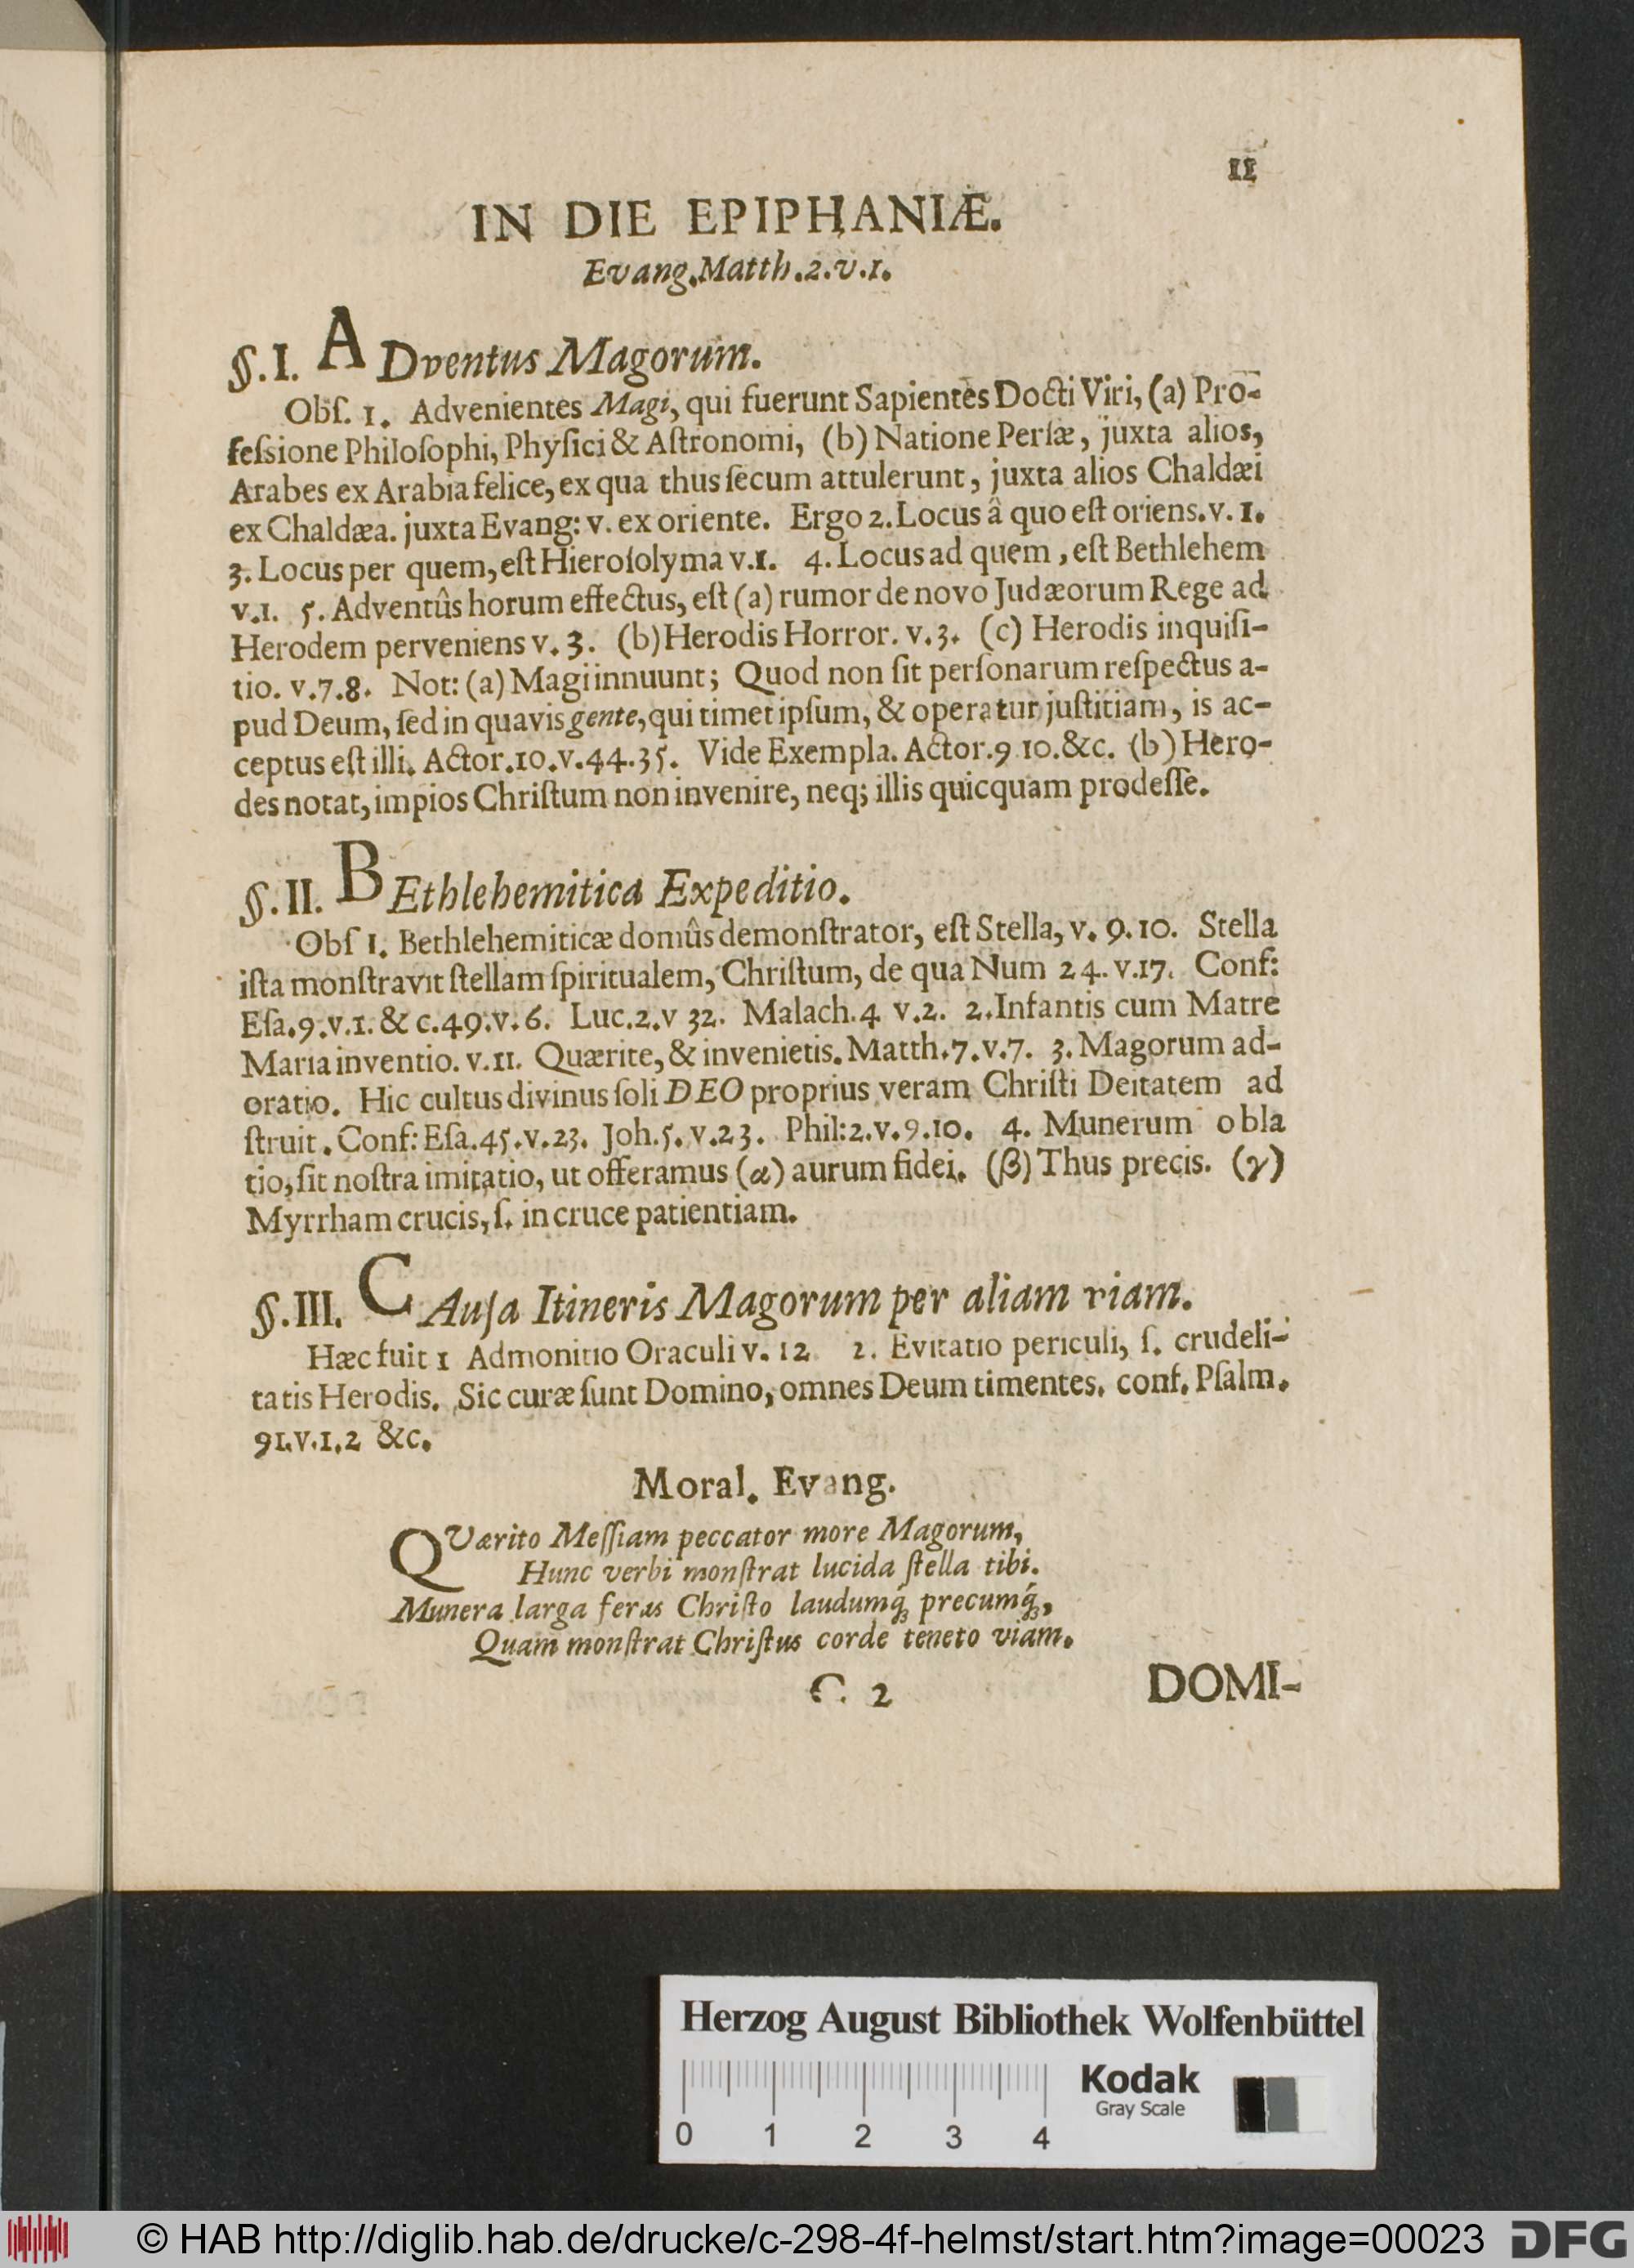 11
IN DIE EPIPHANIÆ.
Evang. Matth. 2. v. 1.
§. I. ADventus Magorum.
Obſ. 1. Advenientes Magi, qui fuerunt Sapientes Docti Viri, (a) Pro-
feſsione Philoſophi, Phyſici & Aſtronomi, (b) Natione Perſæ, juxta alios,
Arabes ex Arabia felice, ex qua thus ſecum attulerunt, juxta alios Chaldæi
ex Chaldæa. juxta Evang: v. ex oriente. Ergo 2. Locus â quo eſt oriens. v. 1.
3. Locus per quem, eſt Hieroſolyma v. 1. 4. Locus ad quem, eſt Bethlehem
v. 1. 5. Adventûs horum effectus, eſt (a) rumor de novo Judæorum Rege ad
Herodem perveniens v. 3. (b) Herodis Horror. v. 3. (c) Herodis inquiſi-
tio. v. 7. 8. Not: (a) Magi innuunt; Quod non ſit perſonarum reſpectus a-
pud Deum, ſed in quavis gente, qui timet ipſum, & operatur juſtitiam, is ac-
ceptus eſt illi. Actor. 10. v. 44. 35. Vide Exempla. Actor. 9 10. &c. (b) Hero-
des notat, impios Chriſtum non invenire, neq; illis quicquam prodeſſe.
§. II. BEthlehemitica Expeditio.
Obſ 1. Bethlehemiticæ domûs demonſtrator, eſt Stella, v. 9. 10. Stella
iſta monſtravit ſtellam ſpiritualem, Chriſtum, de qua Num 24. v. 17. Conf:
Eſa. 9. v. 1. & c. 49. v. 6. Luc. 2. v 32. Malach. 4 v. 2. 2. Infantis cum Matre
Maria inventio. v. 11. Quærite, & invenietis. Matth. 7. v. 7. 3. Magorum ad-
oratio. Hic cultus divinus ſoli DEO proprius veram Chriſti Deitatem ad
ſtruit. Conf: Eſa. 45. v. 23. Joh. 5. v. 23. Phil: 2. v. 9. 10. 4. Munerum obla
tio, ſit noſtra imitatio, ut offeramus (α) aurum fidei. (β) Thus precis. (γ)
Myrrham crucis, ſ. in cruce patientiam.
§. III. CAuſa Itineris Magorum per aliam viam.
Hæc fuit 1 Admonitio Oraculi v. 12 2. Evitatio periculi, ſ. crudeli-
tatis Herodis. Sic curæ ſunt Domino, omnes Deum timentes. conf. Pſalm.
91. v. 1. 2 &c.
Moral. Evang.
QVærito Meſſiam peccator more Magorum,
Hunc verbi monſtrat lucida ſtella tibi.
Munera larga feras Chriſto laudumq́; precumq́;,
Quam monſtrat Chriſtus corde teneto viam.
C 2 DOMI-
Herzog August Bibliothek Wolfenbüttel
Kodak
Gray Scale
0 1 2 3 4
© HAB http://diglib.hab.de/drucke/c-298-4f-helmst/start.htm?image=00023 DFG